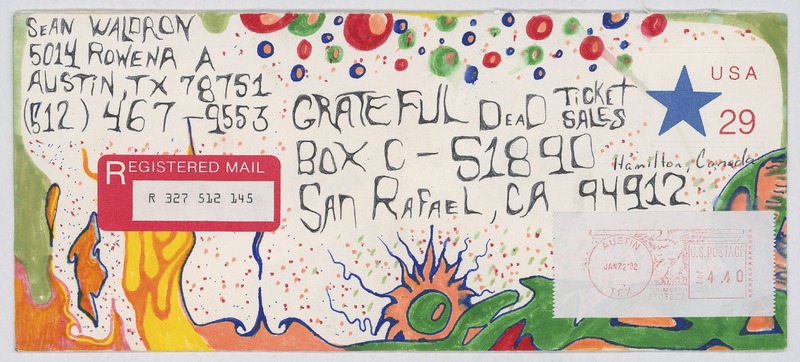 SEAN WALDRON
5014 ROWENA A
AUSTIN, TX 78751
(512) 467-9553
GRATEFUL DEAD TICKET SALES
BOX C-S1890
SAN RAFAEL, CA 94912
USA
29
Hamilton, Canada
REGISTERED MAIL
R 327 512 145
AUSTIN
JAN 22 '92
TEX
U.S. POSTAGE
4.40